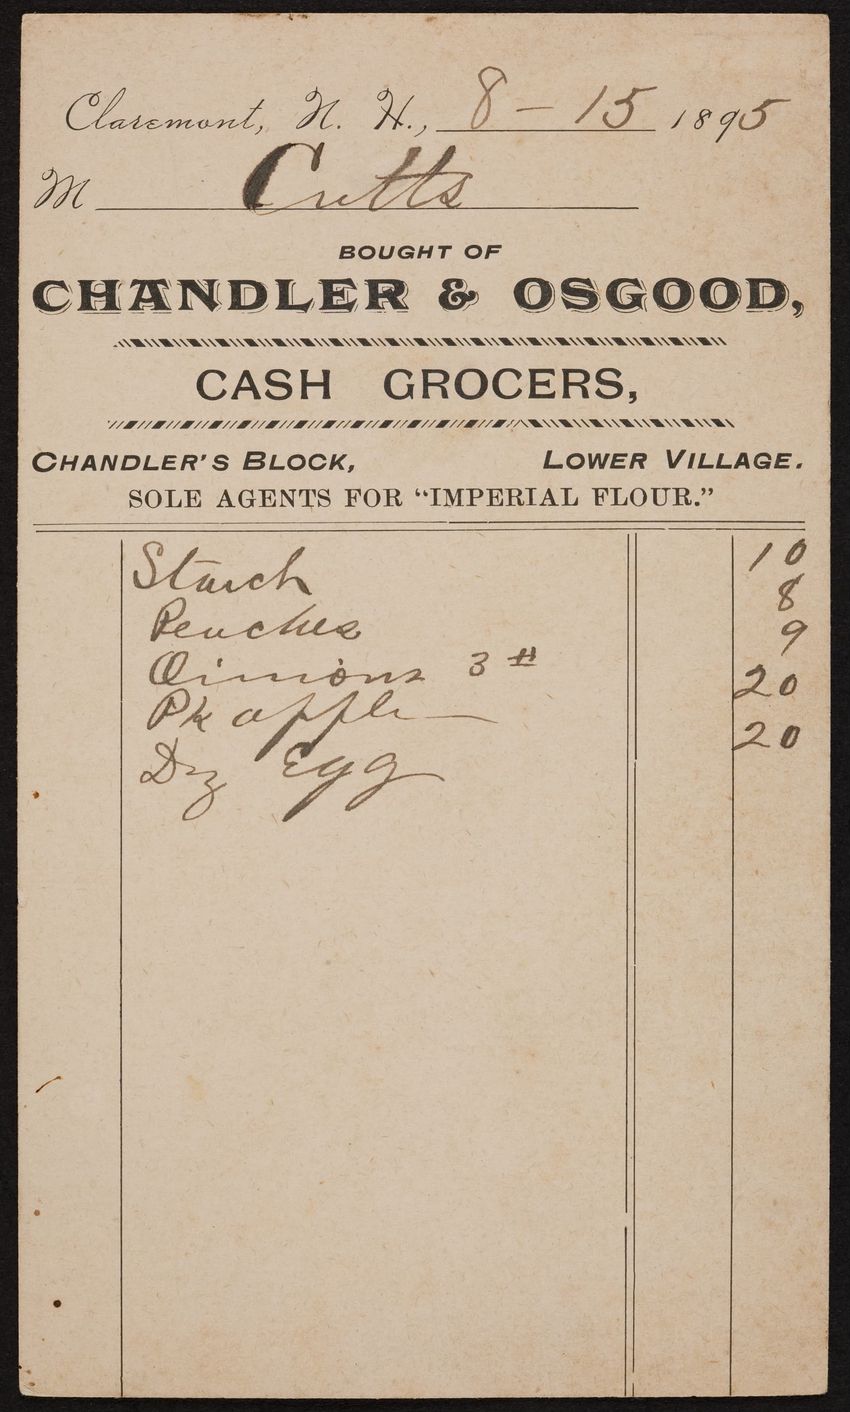 Claremont, N. H., 8 - 15 1895
M Cutts
BOUGHT OF
CHANDLER & OSGOOD,
CASH GROCERS,
CHANDLER'S BLOCK, LOWER VILLAGE.
SOLE AGENTS FOR "IMPERIAL FLOUR."
Starch 10
Peaches 8
Oinions 3 # 9
Pk apple 20
Dz Egg 20